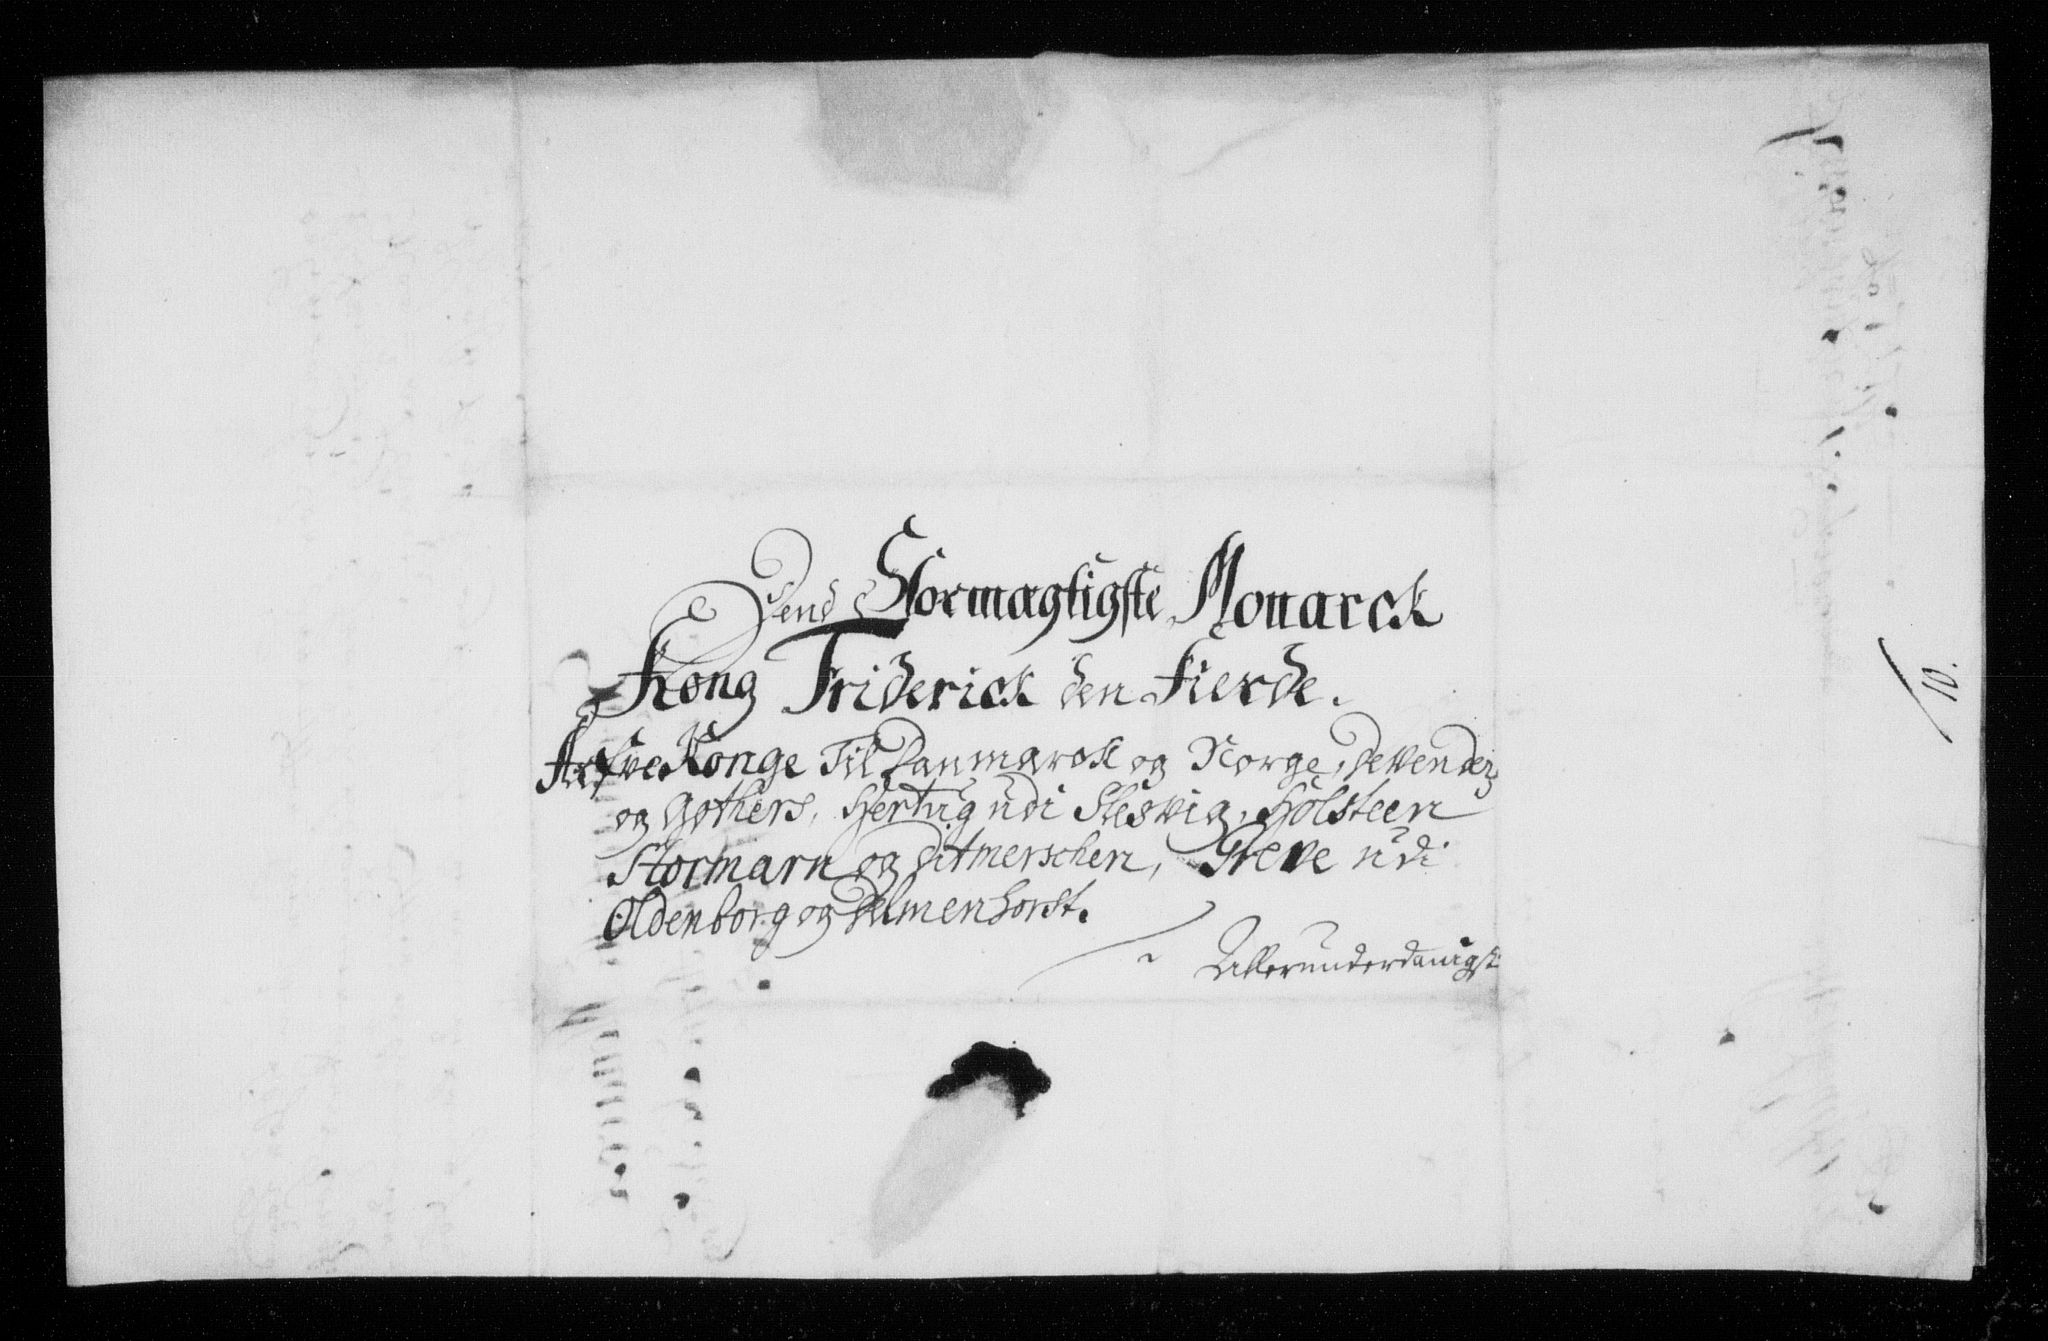 Dend Stormægtigste Monarck
Kong Friderick den Fierde.
Arfve Konge Til Danmarck og Norge, de Venders
og Gothers, Hertug udi Slesvig, Holsteen
Stormarn og Ditmerschen, Greve udi
Oldenborg og Delmenhorst.
Allerunderdanigst
10.